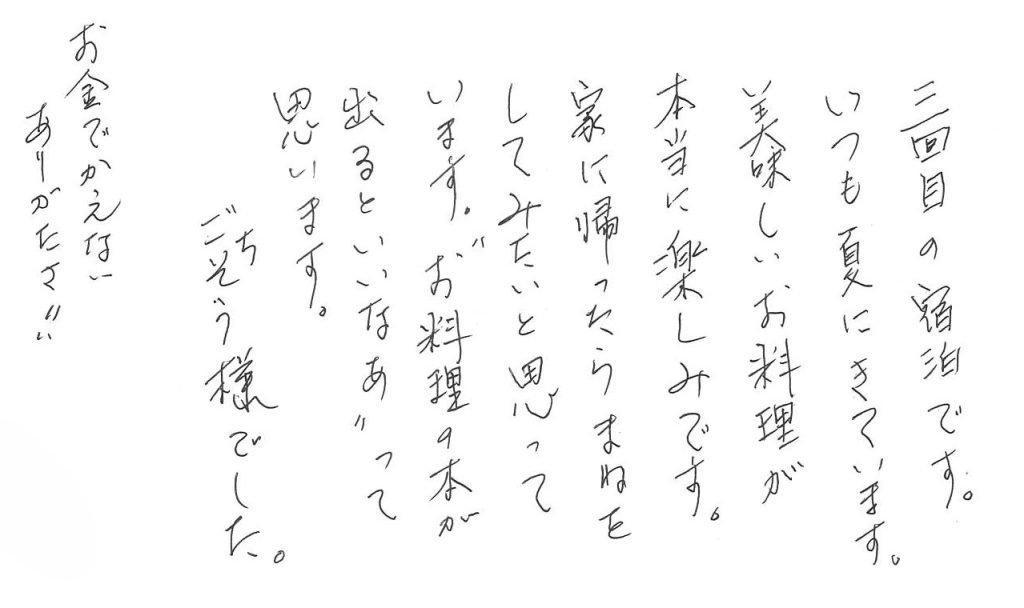 三回目の宿泊です。
いつも夏にきています。
美味しいお料理が
本当に楽しみです。
家に帰ったらまねを
してみたいと思って
います。"お料理の本が
出るといいなあ"って
思います。
ごちそう様でした。
お金でかえない
ありがたさ!!